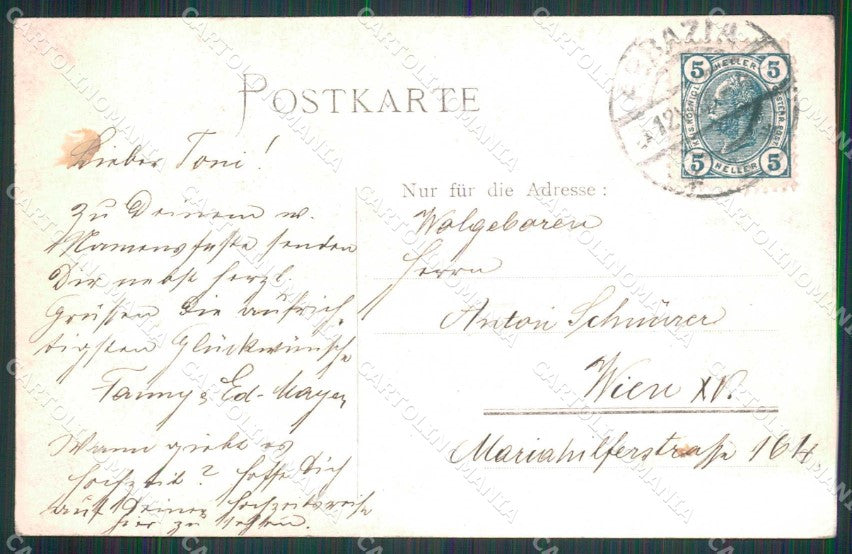 POSTKARTE
ABBAZIA
12
5 HELLER 5
5 HELLER 5
Lieber Toni!
Zu Deinem w.
Namensfeste senden
Dir nebst herzl.
Grüßen die aufrich-
tigsten Glückwünsche
Fanny & Ed. Mayer
Wann giebt es
Hochzeit? hoffe Dich
auf Deiner Hochzeitsreise
hier zu sehen.
Nur für die Adresse:
Wolgeboren
Herrn
Anton Schnürer
Wien XV.
Mariahilferstrasse 164
CARTOLINOMANIA